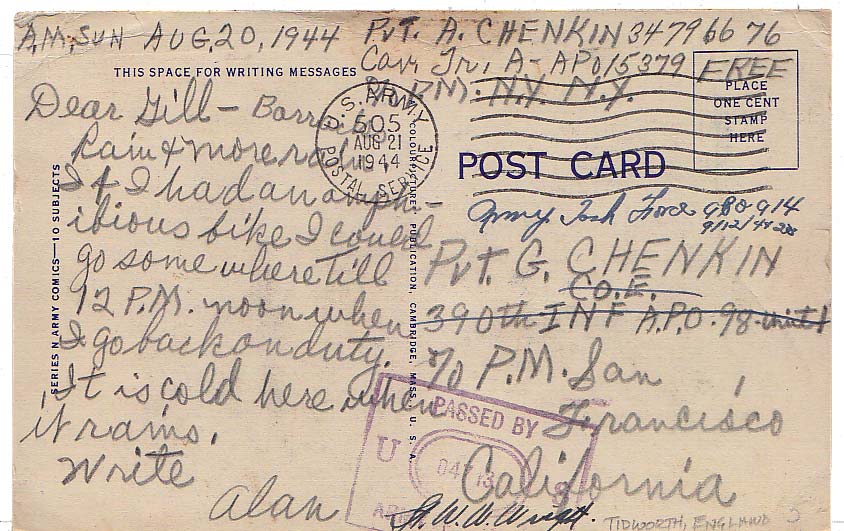 A.M. SUN AUG. 20, 1944
THIS SPACE FOR WRITING MESSAGES
Dear Gill – Barracks
Rain & more rain.
If I had an amph-
ibious bike I could
go somewhere till
12 P.M. noon when
I go back on duty.
It is cold here when
it rains.
Write
Alan
SERIES N ARMY COMICS—10 SUBJECTS
COLOURPICTURE PUBLICATION, CAMBRIDGE, MASS., U. S. A.
PVT. A. CHENKIN 34796676
APO 15379
P.M. N.Y. N.Y.
FREE
PLACE
ONE CENT
STAMP
HERE
U.S. ARMY
505
AUG 21
1944
POSTAL SERVICE
POST CARD
Army Task Force APO 914
9/12/44
PVT. G. CHENKIN
CO. E.
390th INF A.P.O. 98
c/o P.M. San
Francisco
California
PASSED BY
U S
ARMY
TIDWORTH, ENGLAND